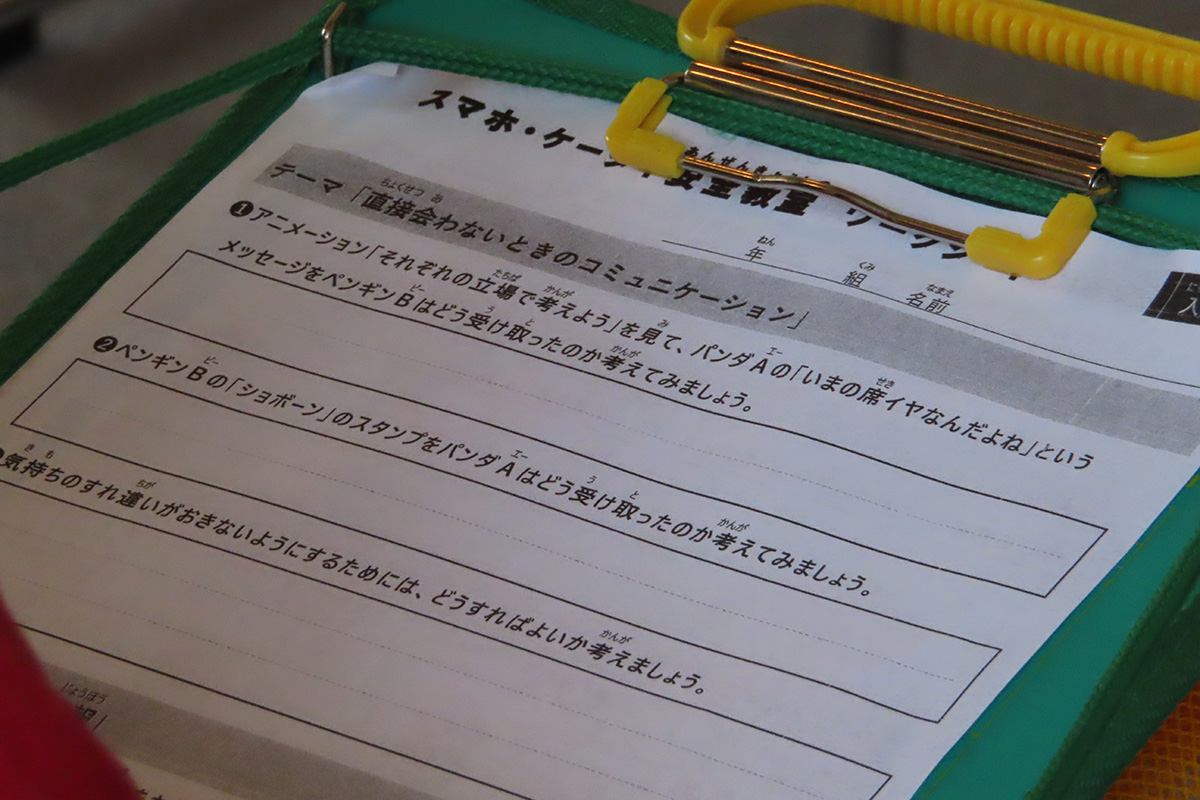 スマホ・ケータイ安全教室
年 組 名前
テーマ「直接会わないときのコミュニケーション」
❶アニメーション「それぞれの立場で考えよう」を見て、パンダAの「いまの席イヤなんだよね」という
メッセージをペンギンBはどう受け取ったのか考えてみましょう。
❷ペンギンBの「ショボーン」のスタンプをパンダAはどう受け取ったのか考えてみましょう。
気持ちのすれ違いがおきないようにするためには、どうすればよいか考えましょう。